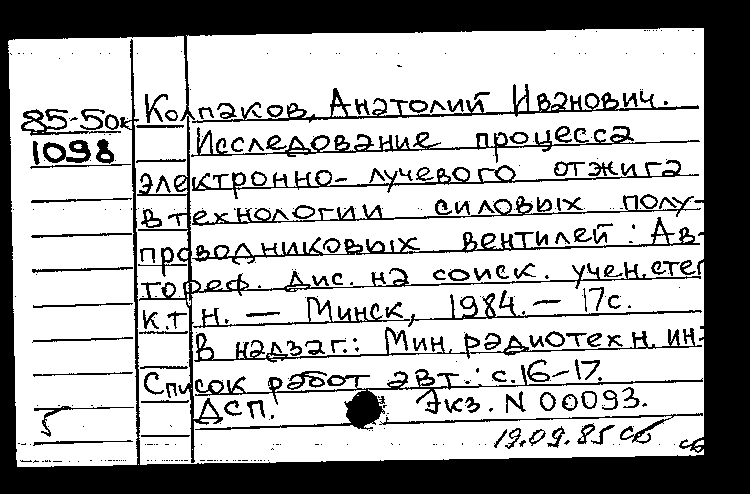 85-5ок Колпаков, Анатолий Иванович.
1098 Исследование процесса
электронно-лучевого отжига
в технологии силовых полу-
проводниковых вентилей: Ав-
тореф. дис. на соиск. учен. степ
к.т.н. — Минск, 1984. — 17с.
В надзаг.: Мин. радиотехн. инт
Список работ авт.: с.16-17.
ДСП. Экз. N 00093.
5 19.09.85 сб сб